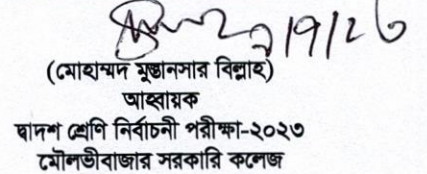 (মোহাম্মদ মুন্তানসার বিল্লাহ)
আহ্বায়ক
দ্বাদশ শ্রেণি নির্বাচনী পরীক্ষা-২০২৩
মৌলভীবাজার সরকারি কলেজ